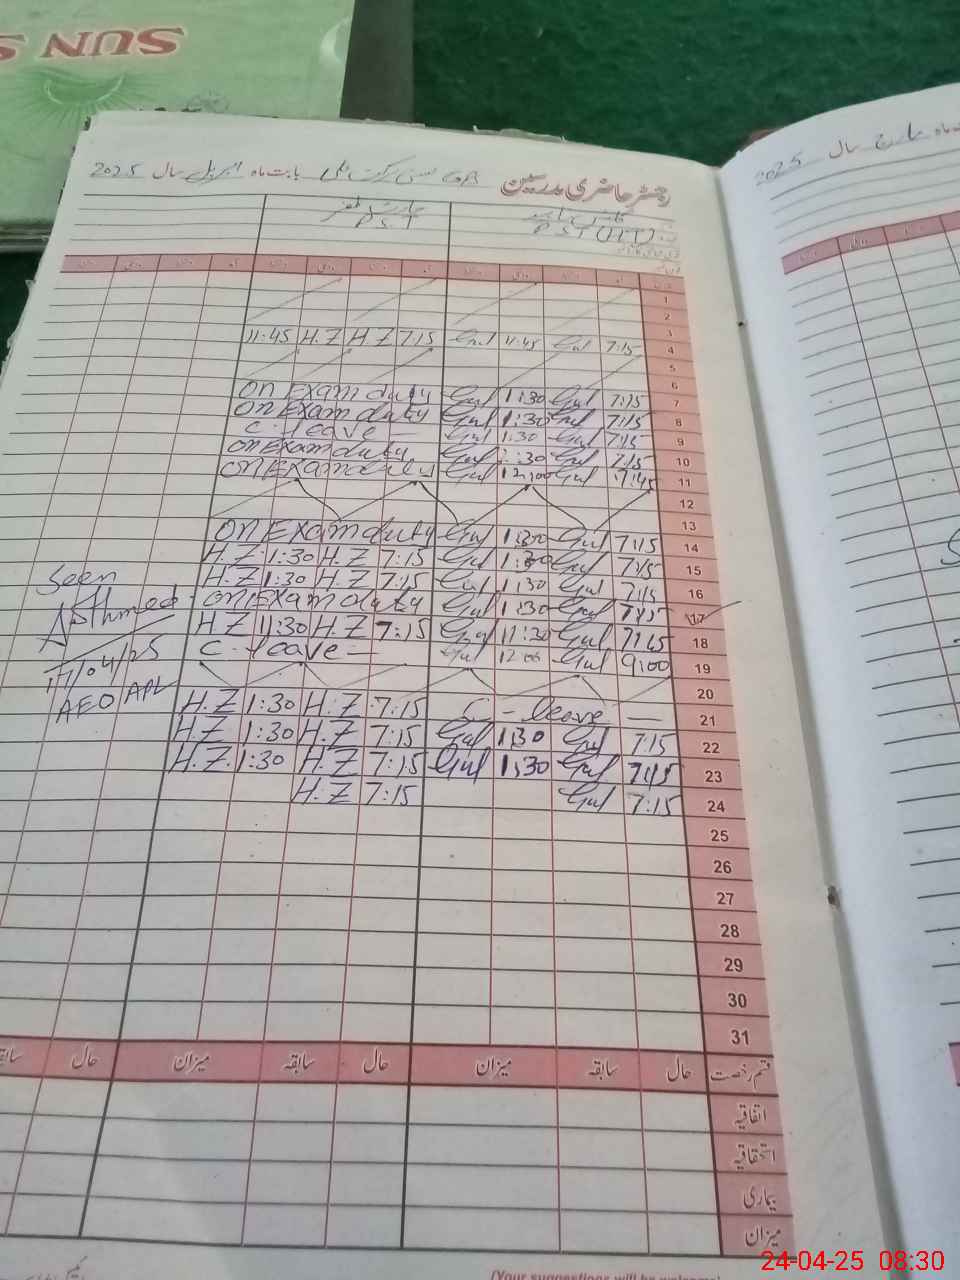 SUN S
رجسٹر حاضری مدرسین GPS بابت ماہ اپریل سال 2025
ماہ مارچ سال 2025
P.S.T (HT) P.S.T
1
2
3
7:15 Gul 11:45 Gul 7:15 H.Z H.Z 11:45 4
5
6
7:15 Gul 1:30 Gul on Exam duty 7
7:15 Gul 1:30 Gul on Exam duty 8
7:15 Gul 1:30 Gul C. leave 9
7:15 Gul 1:30 Gul on Exam duty 10
7:45 Gul 12:00 Gul on Exam duty 11
12
13
7:15 Gul 1:30 Gul on Exam duty 14
7:15 Gul 1:30 Gul 7:15 H.Z 1:30 H.Z 15
7:15 Gul 1:30 Gul 7:15 H.Z 1:30 H.Z 16
7:15 Gul 1:30 Gul on Exam duty 17
7:15 Gul 11:30 Gul 7:15 H.Z 11:30 H.Z 18
9:00 Gul 12:00 Gul C. leave — 19
20
C - leave — 7:15 H.Z 1:30 H.Z 21
7:15 Gul 1:30 Gul 7:15 H.Z 1:30 H.Z 22
7:15 Gul 1:30 Gul 7:15 H.Z 1:30 H.Z 23
7:15 Gul 7:15 H.Z 24
25
26
27
28
29
30
31
Seen
17/04/25
AEO APL
قسم رخصت حال سابقہ میزان حال سابقہ میزان حال
اتفاقیہ
استحقاقیہ
بیماری
میزان
(Your suggestions will be welcome)
24-04-25 08:30